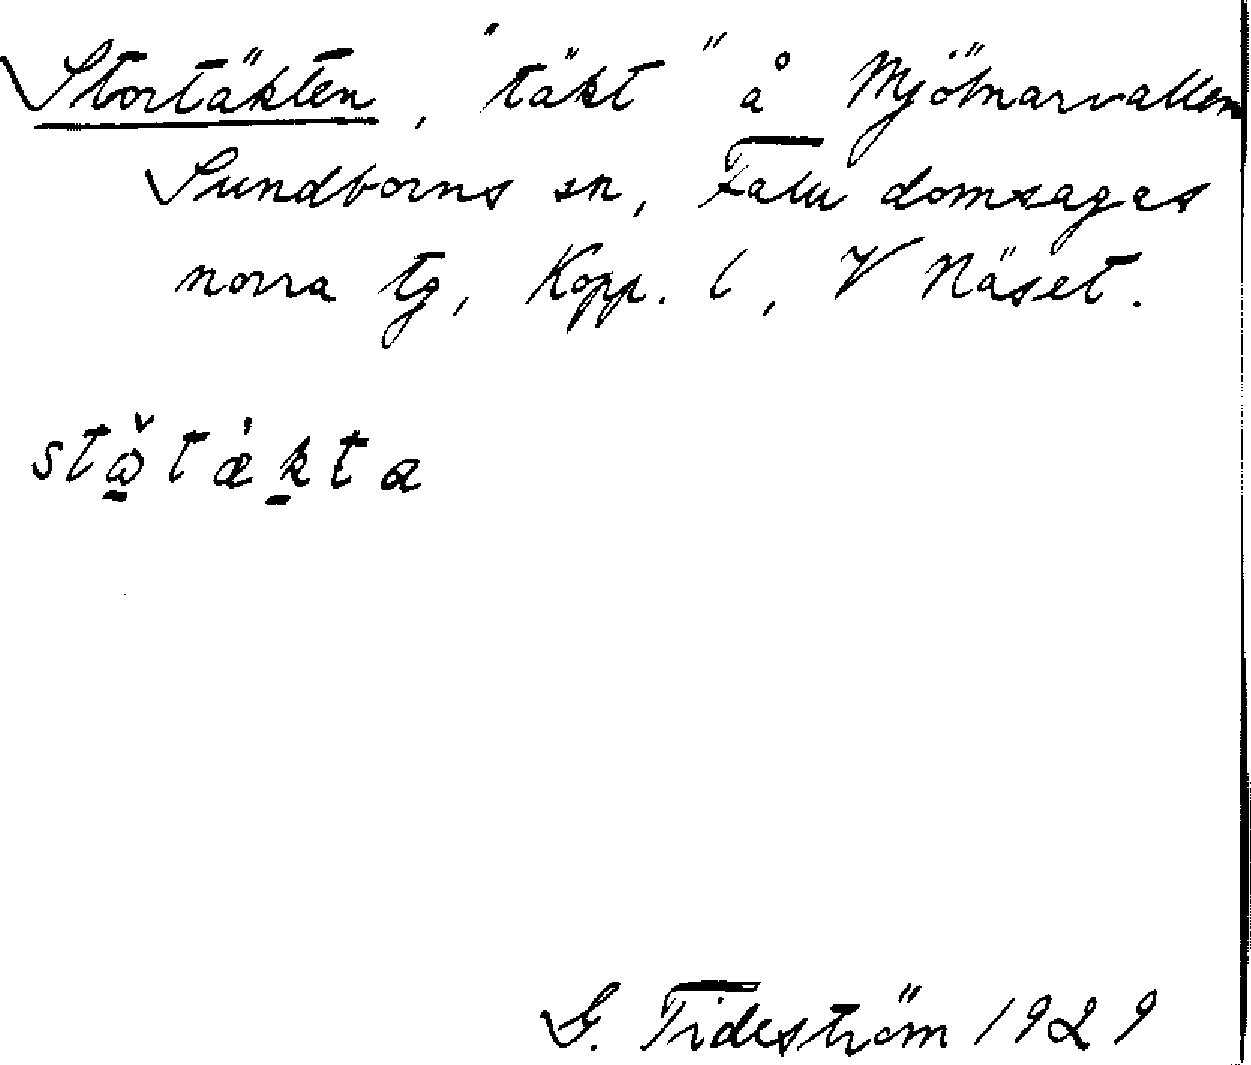 Stortäkten, "täkt" å Mjölnarvallen
Sundborns sn, Falu domsagas
norra tg, Kopp. l, V Näset.
ståtækta
G. Tideström 1929